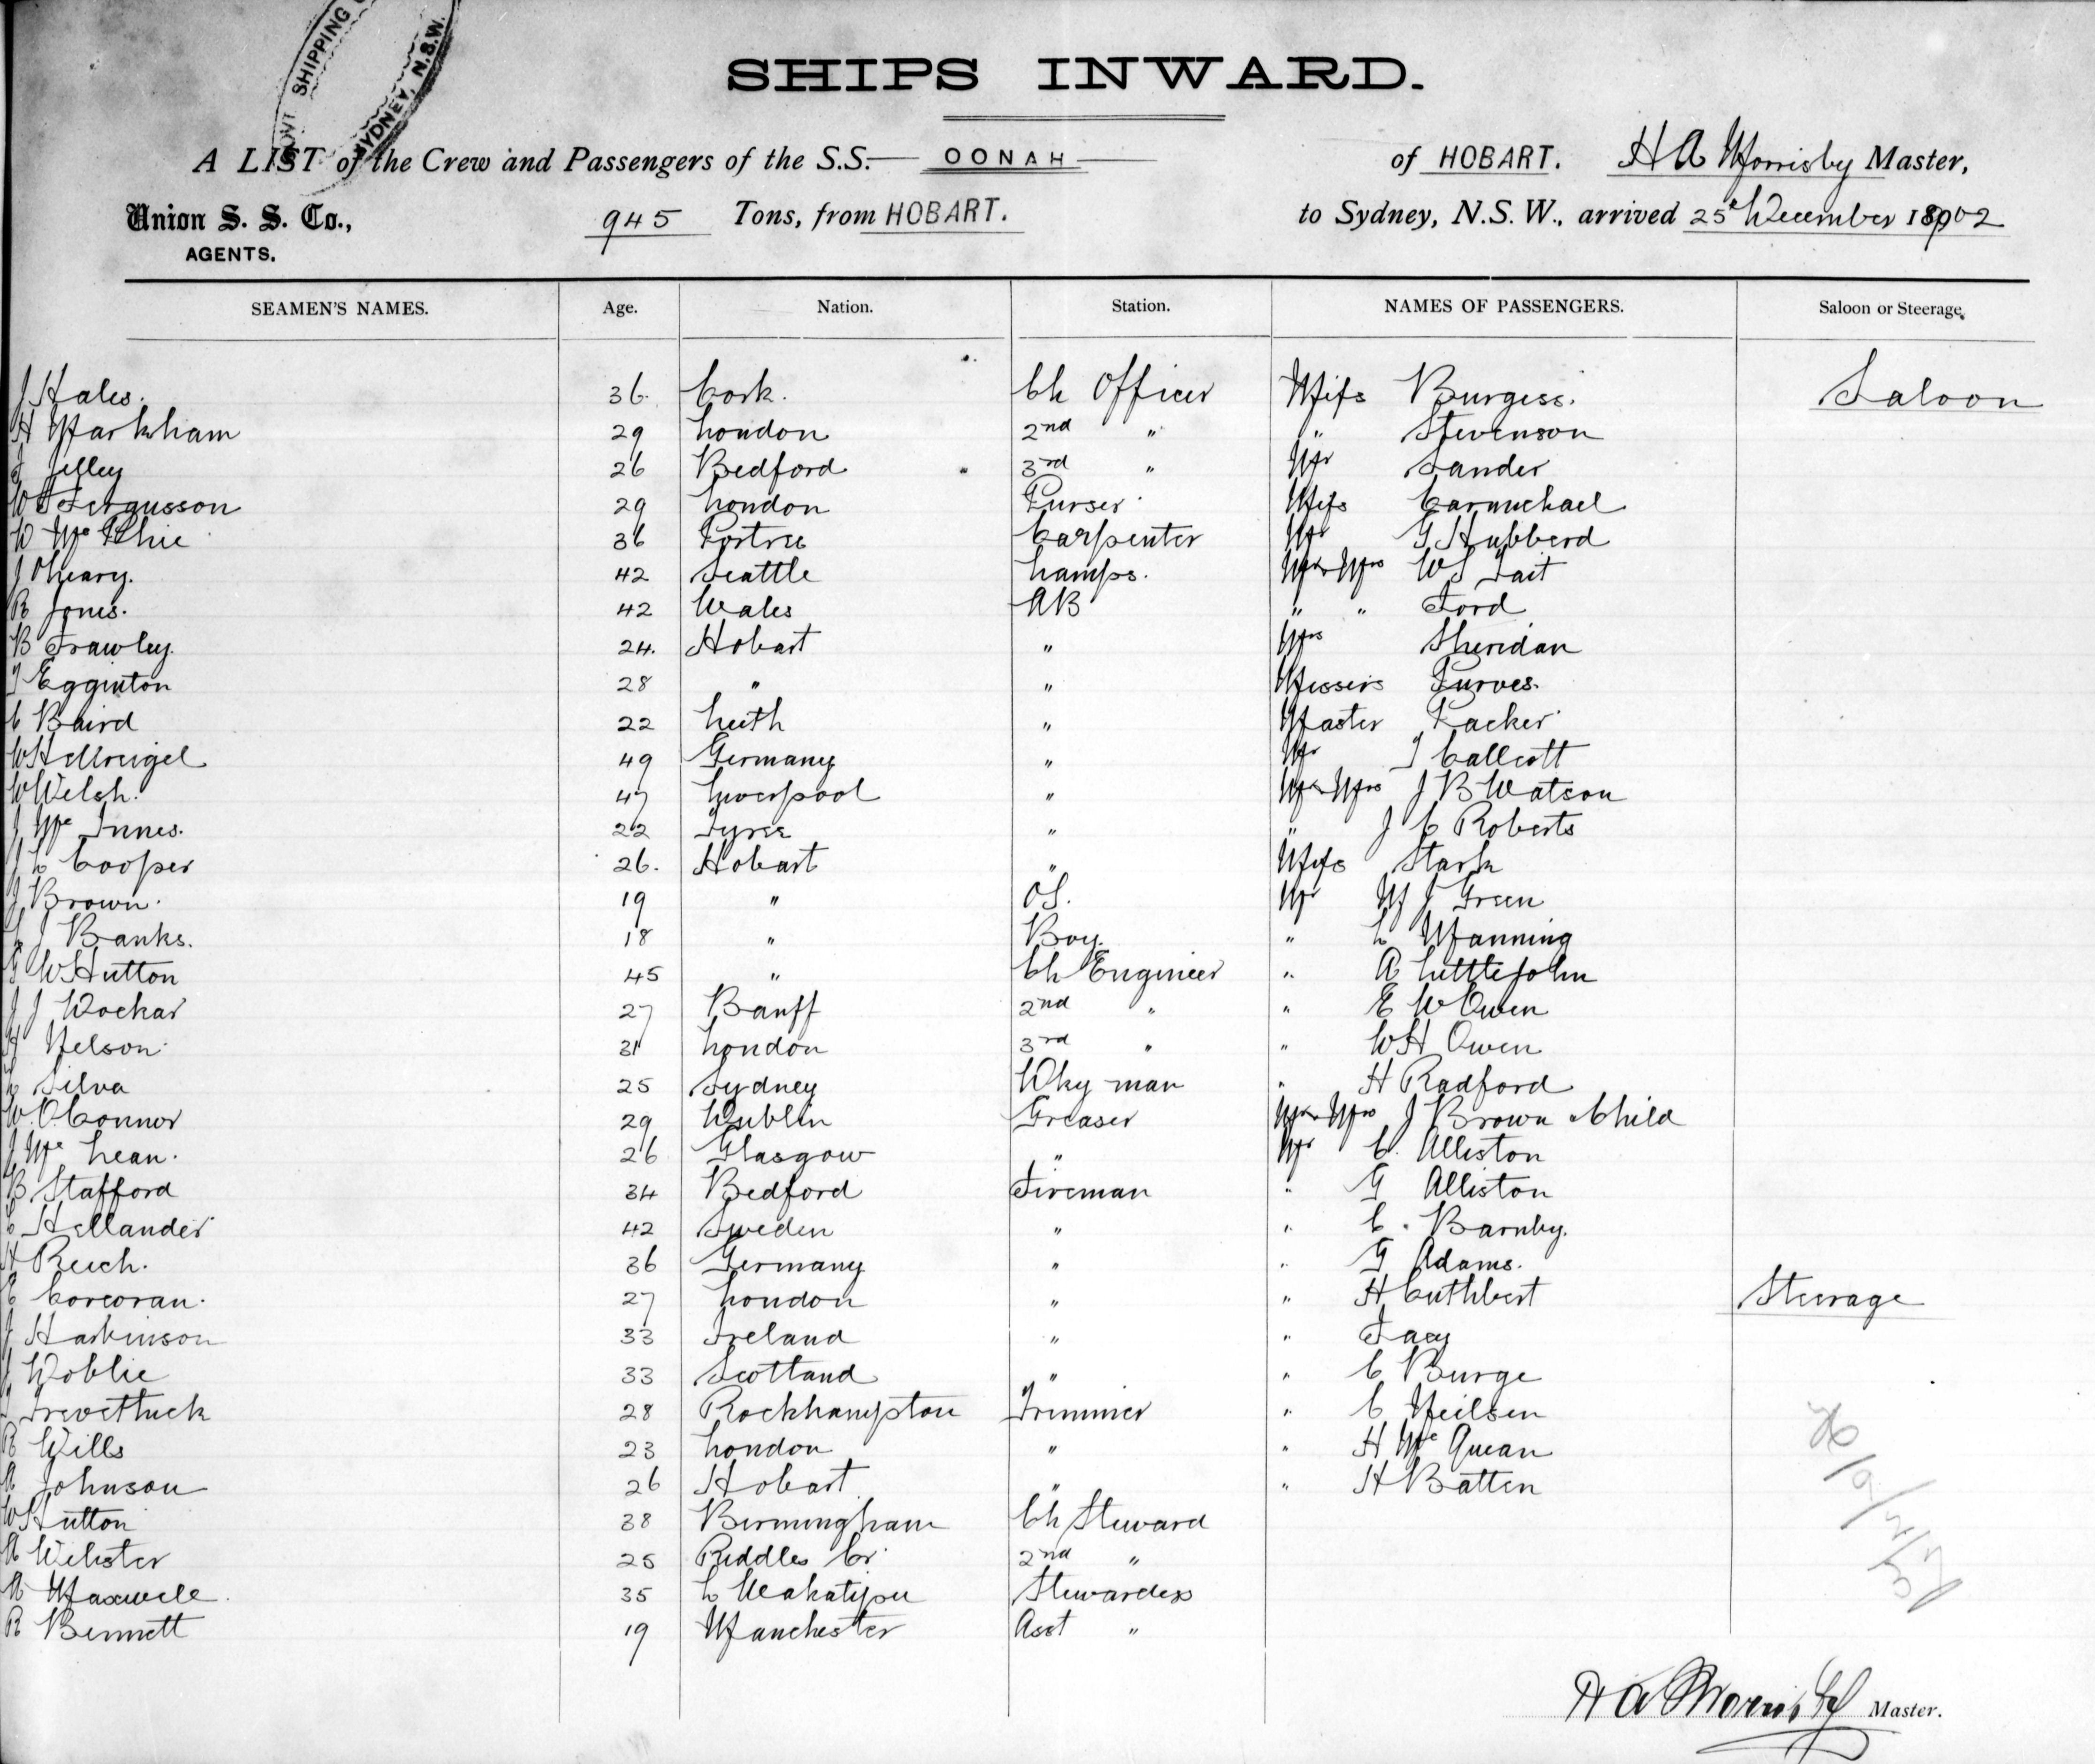 GOVT SHIPPING
SYDNEY, N.S.W.
SHIPS INWARD.
A LIST of the Crew and Passengers of the S.S. OONAH of HOBART. H A Morrisby Master,
Union S. S. Co., AGENTS. 945 Tons, from HOBART. to Sydney, N.S.W., arrived 25th December 1902
SEAMEN'S NAMES. Age. Nation. Station. NAMES OF PASSENGERS. Saloon or Steerage.
J Hales. 36. Cork. Ch Officer Miss Burgess. Saloon
H Markham 29 London 2nd " " Stevenson
Jelley 26 Bedford 3rd " Mr Sander
W Fergusson 29 London Purser Miss Carmichael
W Mc Phie 36 Portree Carpenter Mr G Hubberd
J OLeary. 42 Seattle Lamps. Mr & Mrs W S Tait
R Jones. 42 Wales AB " " Ford
B Frawley. 24. Hobart " Mrs Sheridan
T Egginton 28 " " Messrs Purves.
C Baird 22 Leith " Master Packer
W 49 Germany " Mr T Callcott
W Welsh. 47 Liverpool " Mr & Mrs J B Watson
J Mc Innes. 22 Tyree " " J C Roberts
J L Cooper 26. Hobart " Miss Stark
J Brown. 19 " OS. Mr M J Green
J Banks. 18 " Boy. " L Manning
G W Hutton 45 " Ch Engineer " A Littlejohn
J J Dockar 27 Banff 2nd " " E W Owen
H Nelson 31 London 3rd " " W H Owen
Silva 25 Sydney Dky man " H Radford
W. O'Connor 29 Dublin Greaser Mr & Mrs J Brown & Child
J Mc Lean. 26 Glasgow " Mr C. Alliston
B. Stafford 34 Bedford Fireman " G Alliston
Hellander 42 Sweden " " C. Barnby.
H Reich. 36 Germany " " G Adams.
E Corcoran. 27 London " " H Cuthbert Steerage
J Harkinson 33 Ireland " " Facy
J Doblie 33 Scotland " " C Burge
28 Rockhampton Trimmer " C Neilsen
R Wills 23 London " " H Mc Quean
A Johnson 26 Hobart " " H Batten
W Hutton 38 Birmingham Ch Steward
A Webster 25 Riddles Cr. 2nd "
A Maxwell. 35 L Wakatipu Stewardess
R Bennett 19 Manchester Asst "
H A Morrisby Master.